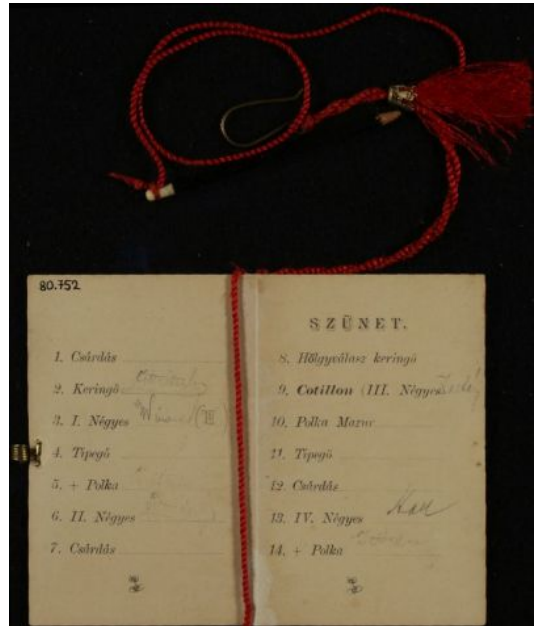 80.752
1. Csárdás
2. Keringő
3. I. Négyes
4. Tipegő
5. + Polka
6. II. Négyes
7. Csárdás
SZÜNET.
8. Hölgyválasz keringő
9. Cotillon (III. Négyes
10. Polka Mazur
11. Tipegő
12. Csárdás
13. IV. Négyes
14. + Polka